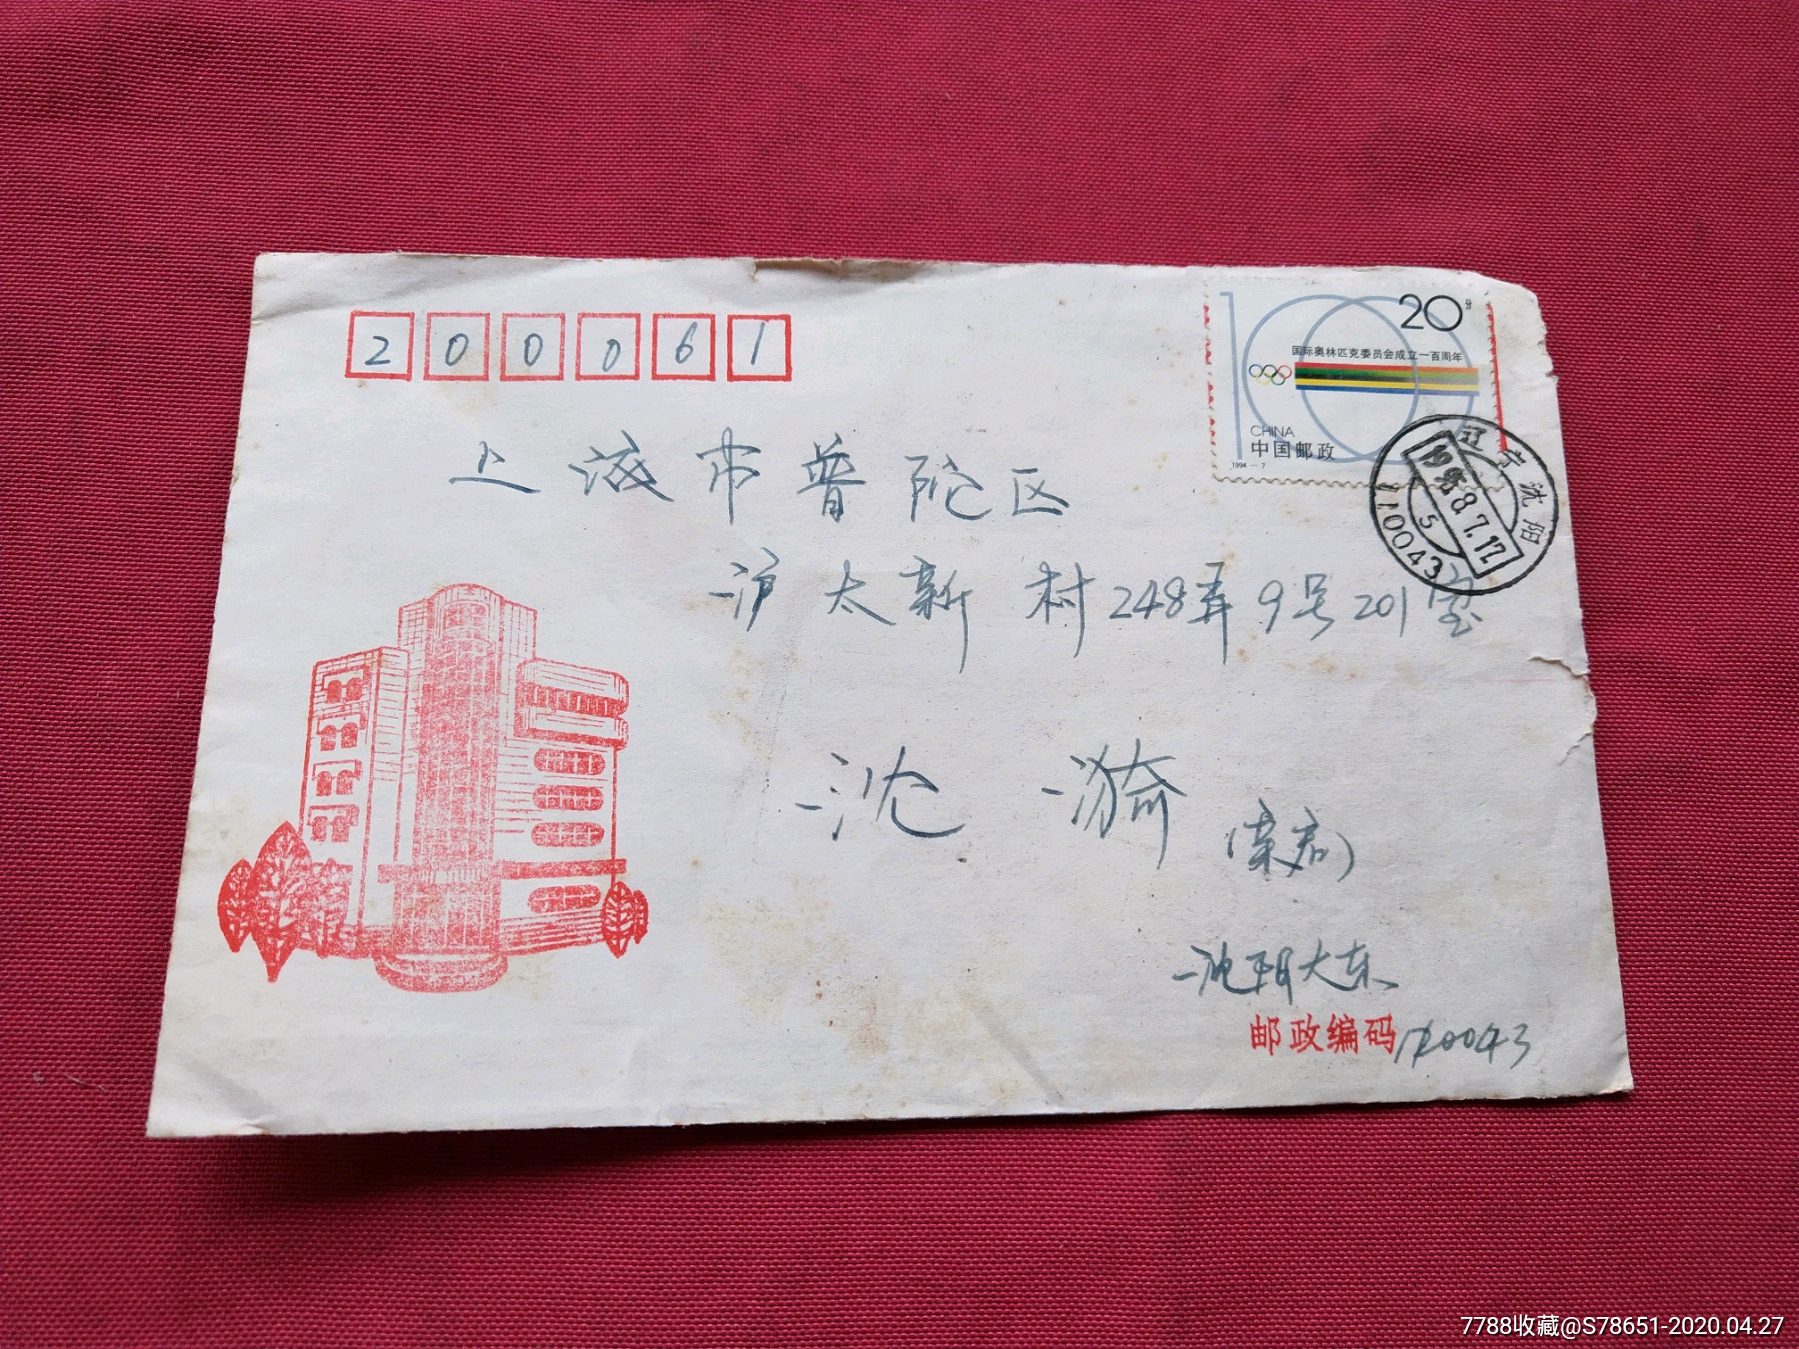 200061
20分
国际奥林匹克委员会成立一百周年
CHINA
中国邮政
1994-7
辽宁沈阳
1995.8.7.17
5
110043
上海市普陀区
沪太新村248弄9号201室
沈漪
沈阳大东
邮政编码110043
7788收藏@S78651-2020.04.27